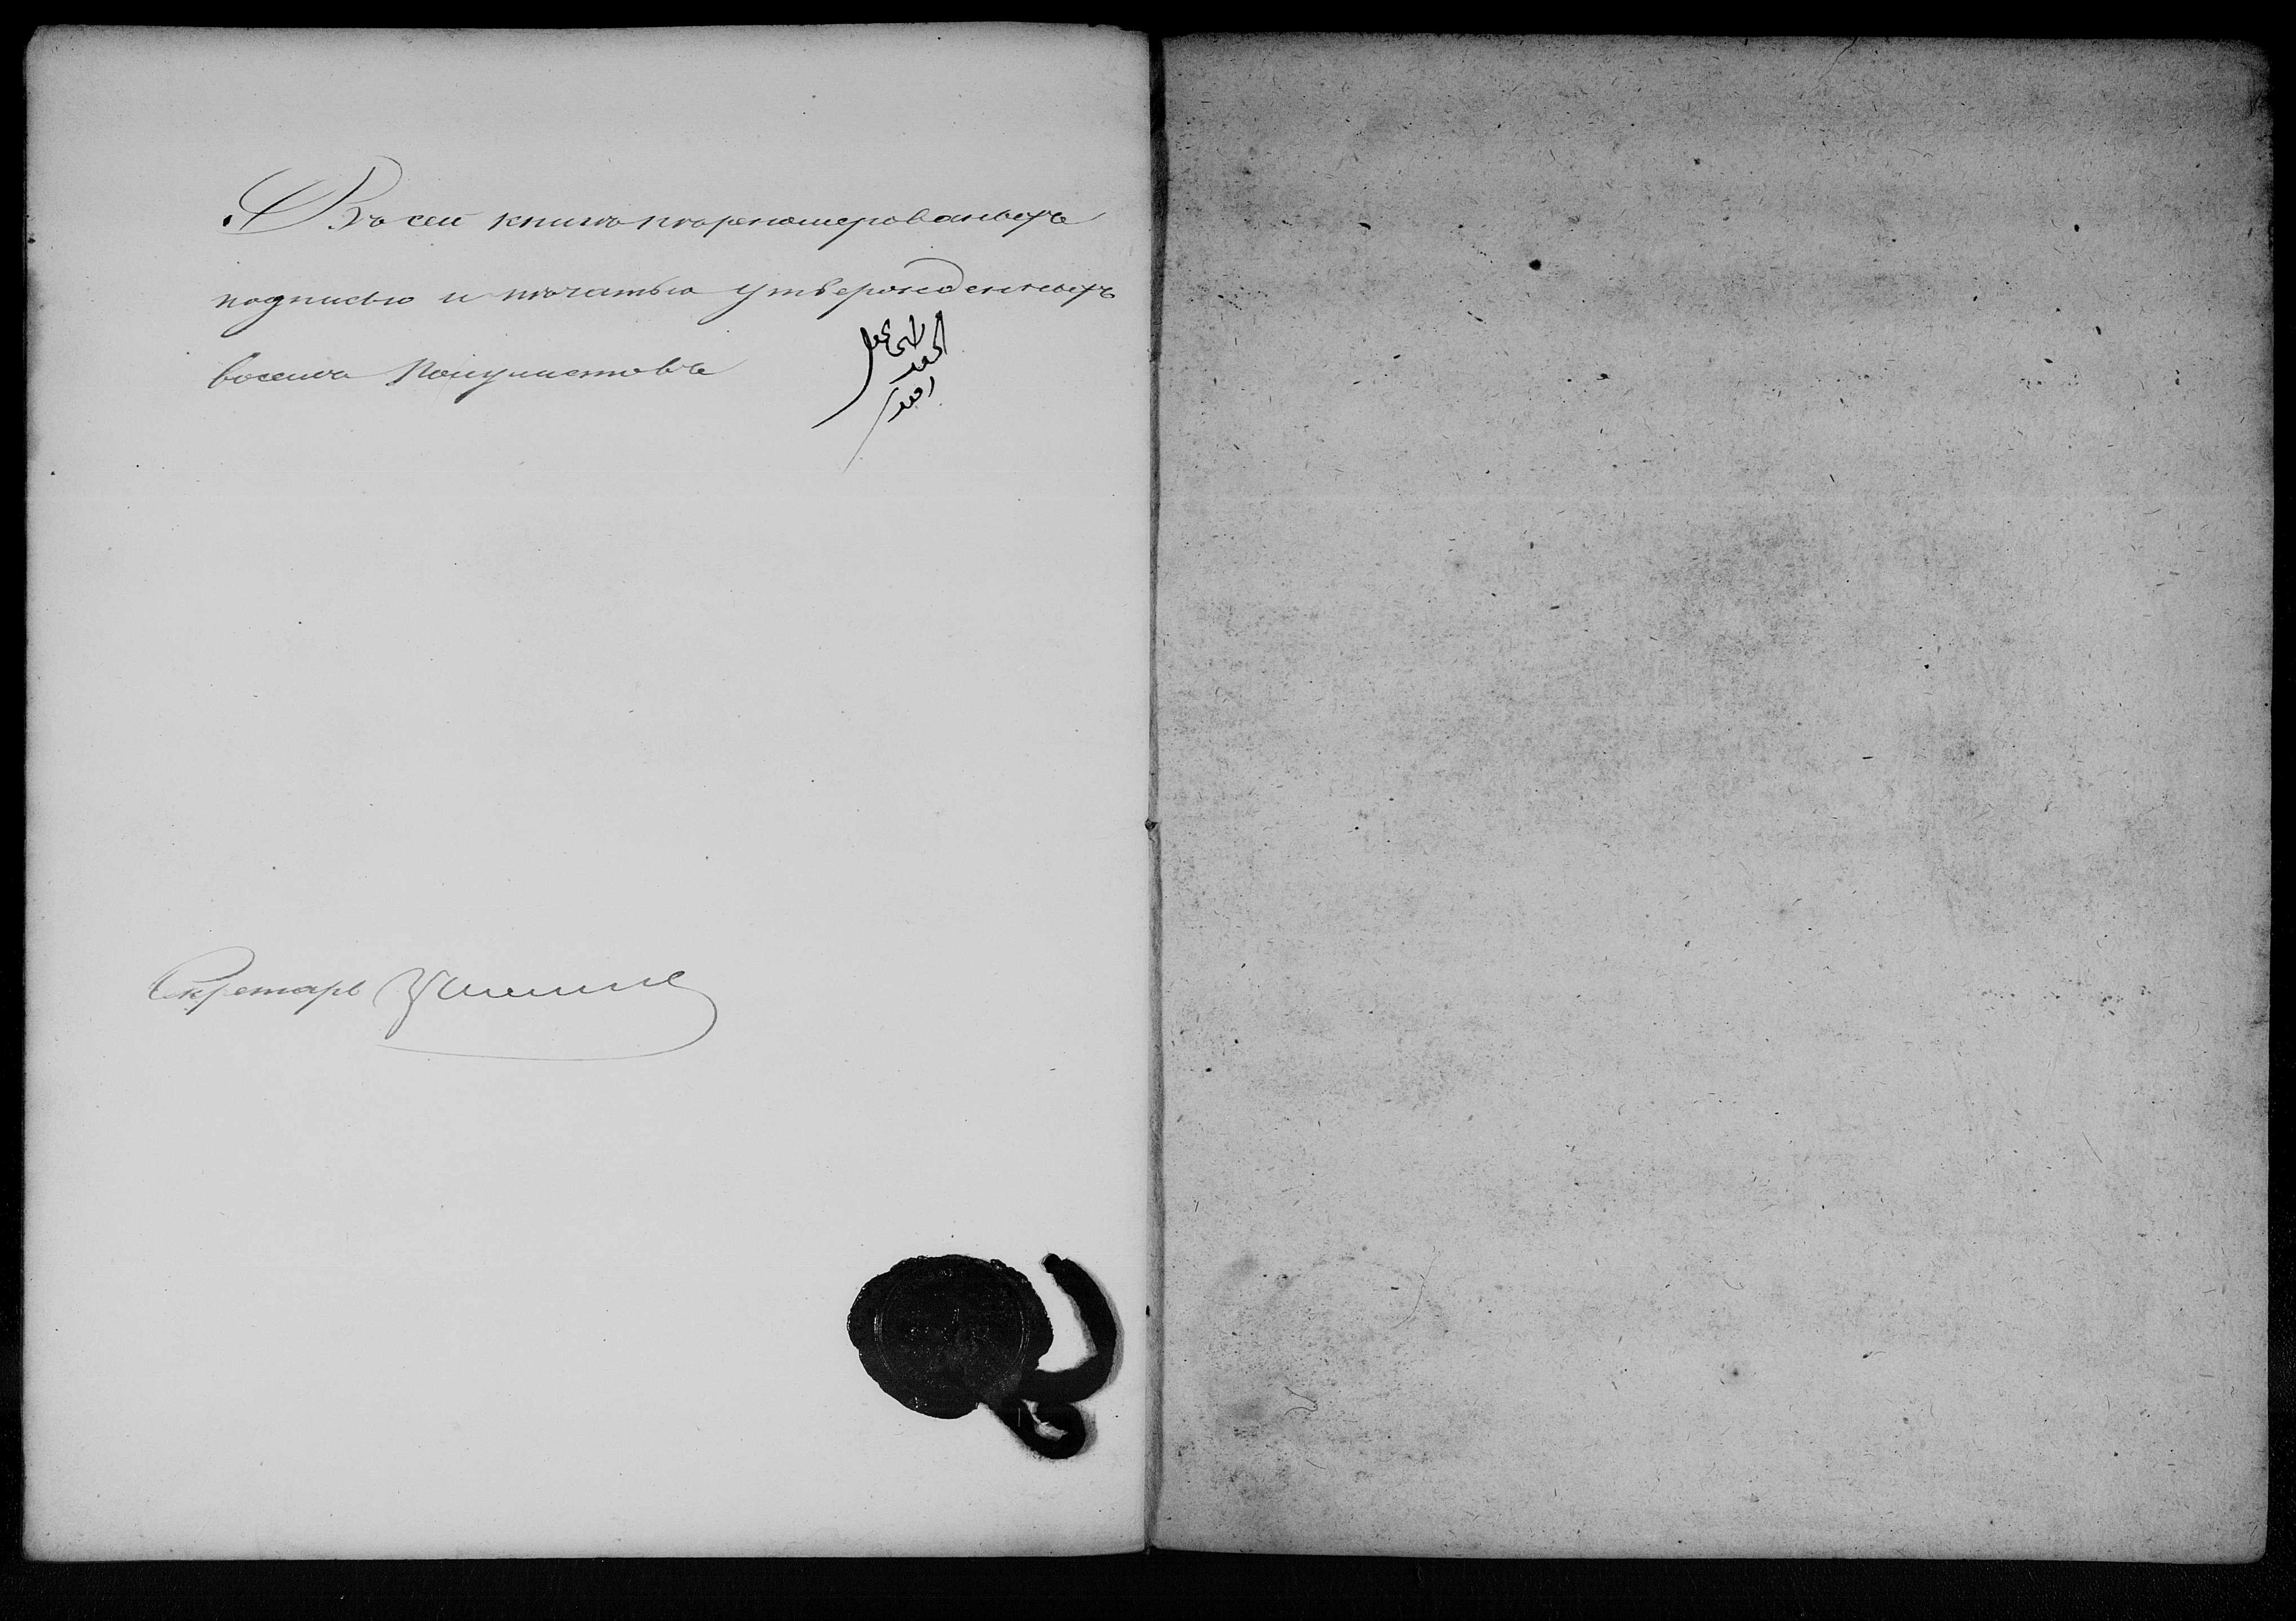 Въ сей книгѣ перенумерованыхъ
подписью и печатью утвержденныхъ
восемь полулистовъ
Секретарь